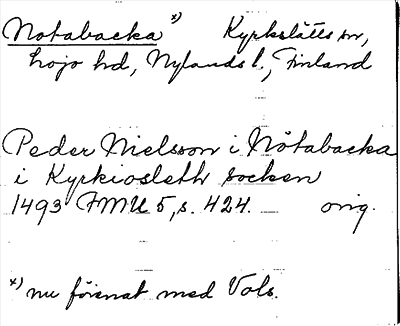 Notabacka x) Kyrkslätts sn,
Lojo hd, Nylands l., Finland
Peder Nielsson i Nötabacka
i Kyrkiosleth socken
1493 FMU 5, s. 424. orig.
x) nu förenat med Vols.